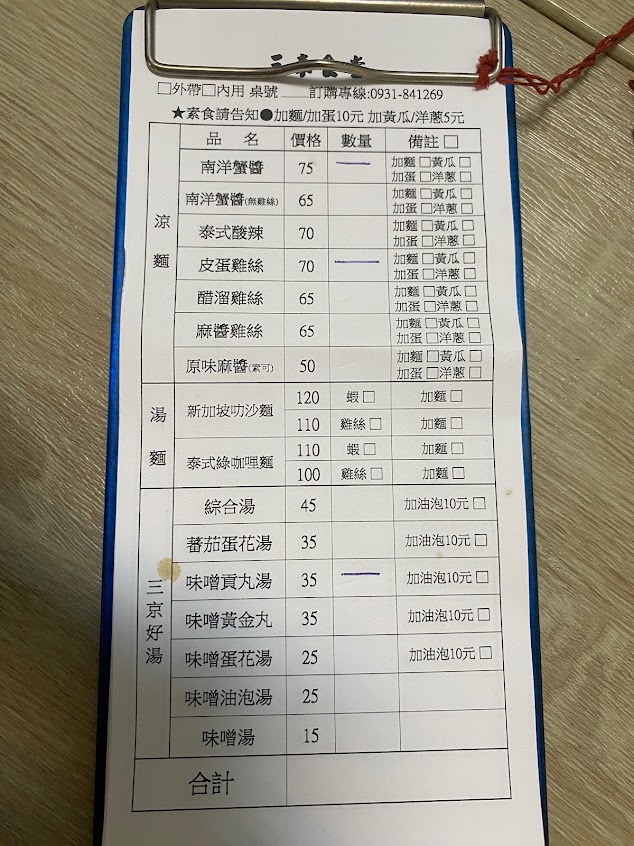 □外帶□內用 桌號____訂購專線:0931-841269
★素食請告知●加麵/加蛋10元 加黃瓜/洋蔥5元
品名 價格 數量 備註□
涼麵
南洋蟹醬 75 一 加麵□黃瓜□
加蛋□洋蔥□
南洋蟹醬(無雞絲) 65 加麵□黃瓜□
加蛋□洋蔥□
泰式酸辣 70 加麵□黃瓜□
加蛋□洋蔥□
皮蛋雞絲 70 一 加麵□黃瓜□
加蛋□洋蔥□
醋溜雞絲 65 加麵□黃瓜□
加蛋□洋蔥□
麻醬雞絲 65 加麵□黃瓜□
加蛋□洋蔥□
原味麻醬(素可) 50 加麵□黃瓜□
加蛋□洋蔥□
湯麵
新加坡叻沙麵 120 蝦□ 加麵□
110 雞絲□ 加麵□
泰式綠咖哩麵 110 蝦□ 加麵□
100 雞絲□ 加麵□
三京好湯
綜合湯 45 加油泡10元□
蕃茄蛋花湯 35 加油泡10元□
味噌貢丸湯 35 一 加油泡10元□
味噌黃金丸 35 加油泡10元□
味噌蛋花湯 25 加油泡10元□
味噌油泡湯 25
味噌湯 15
合計